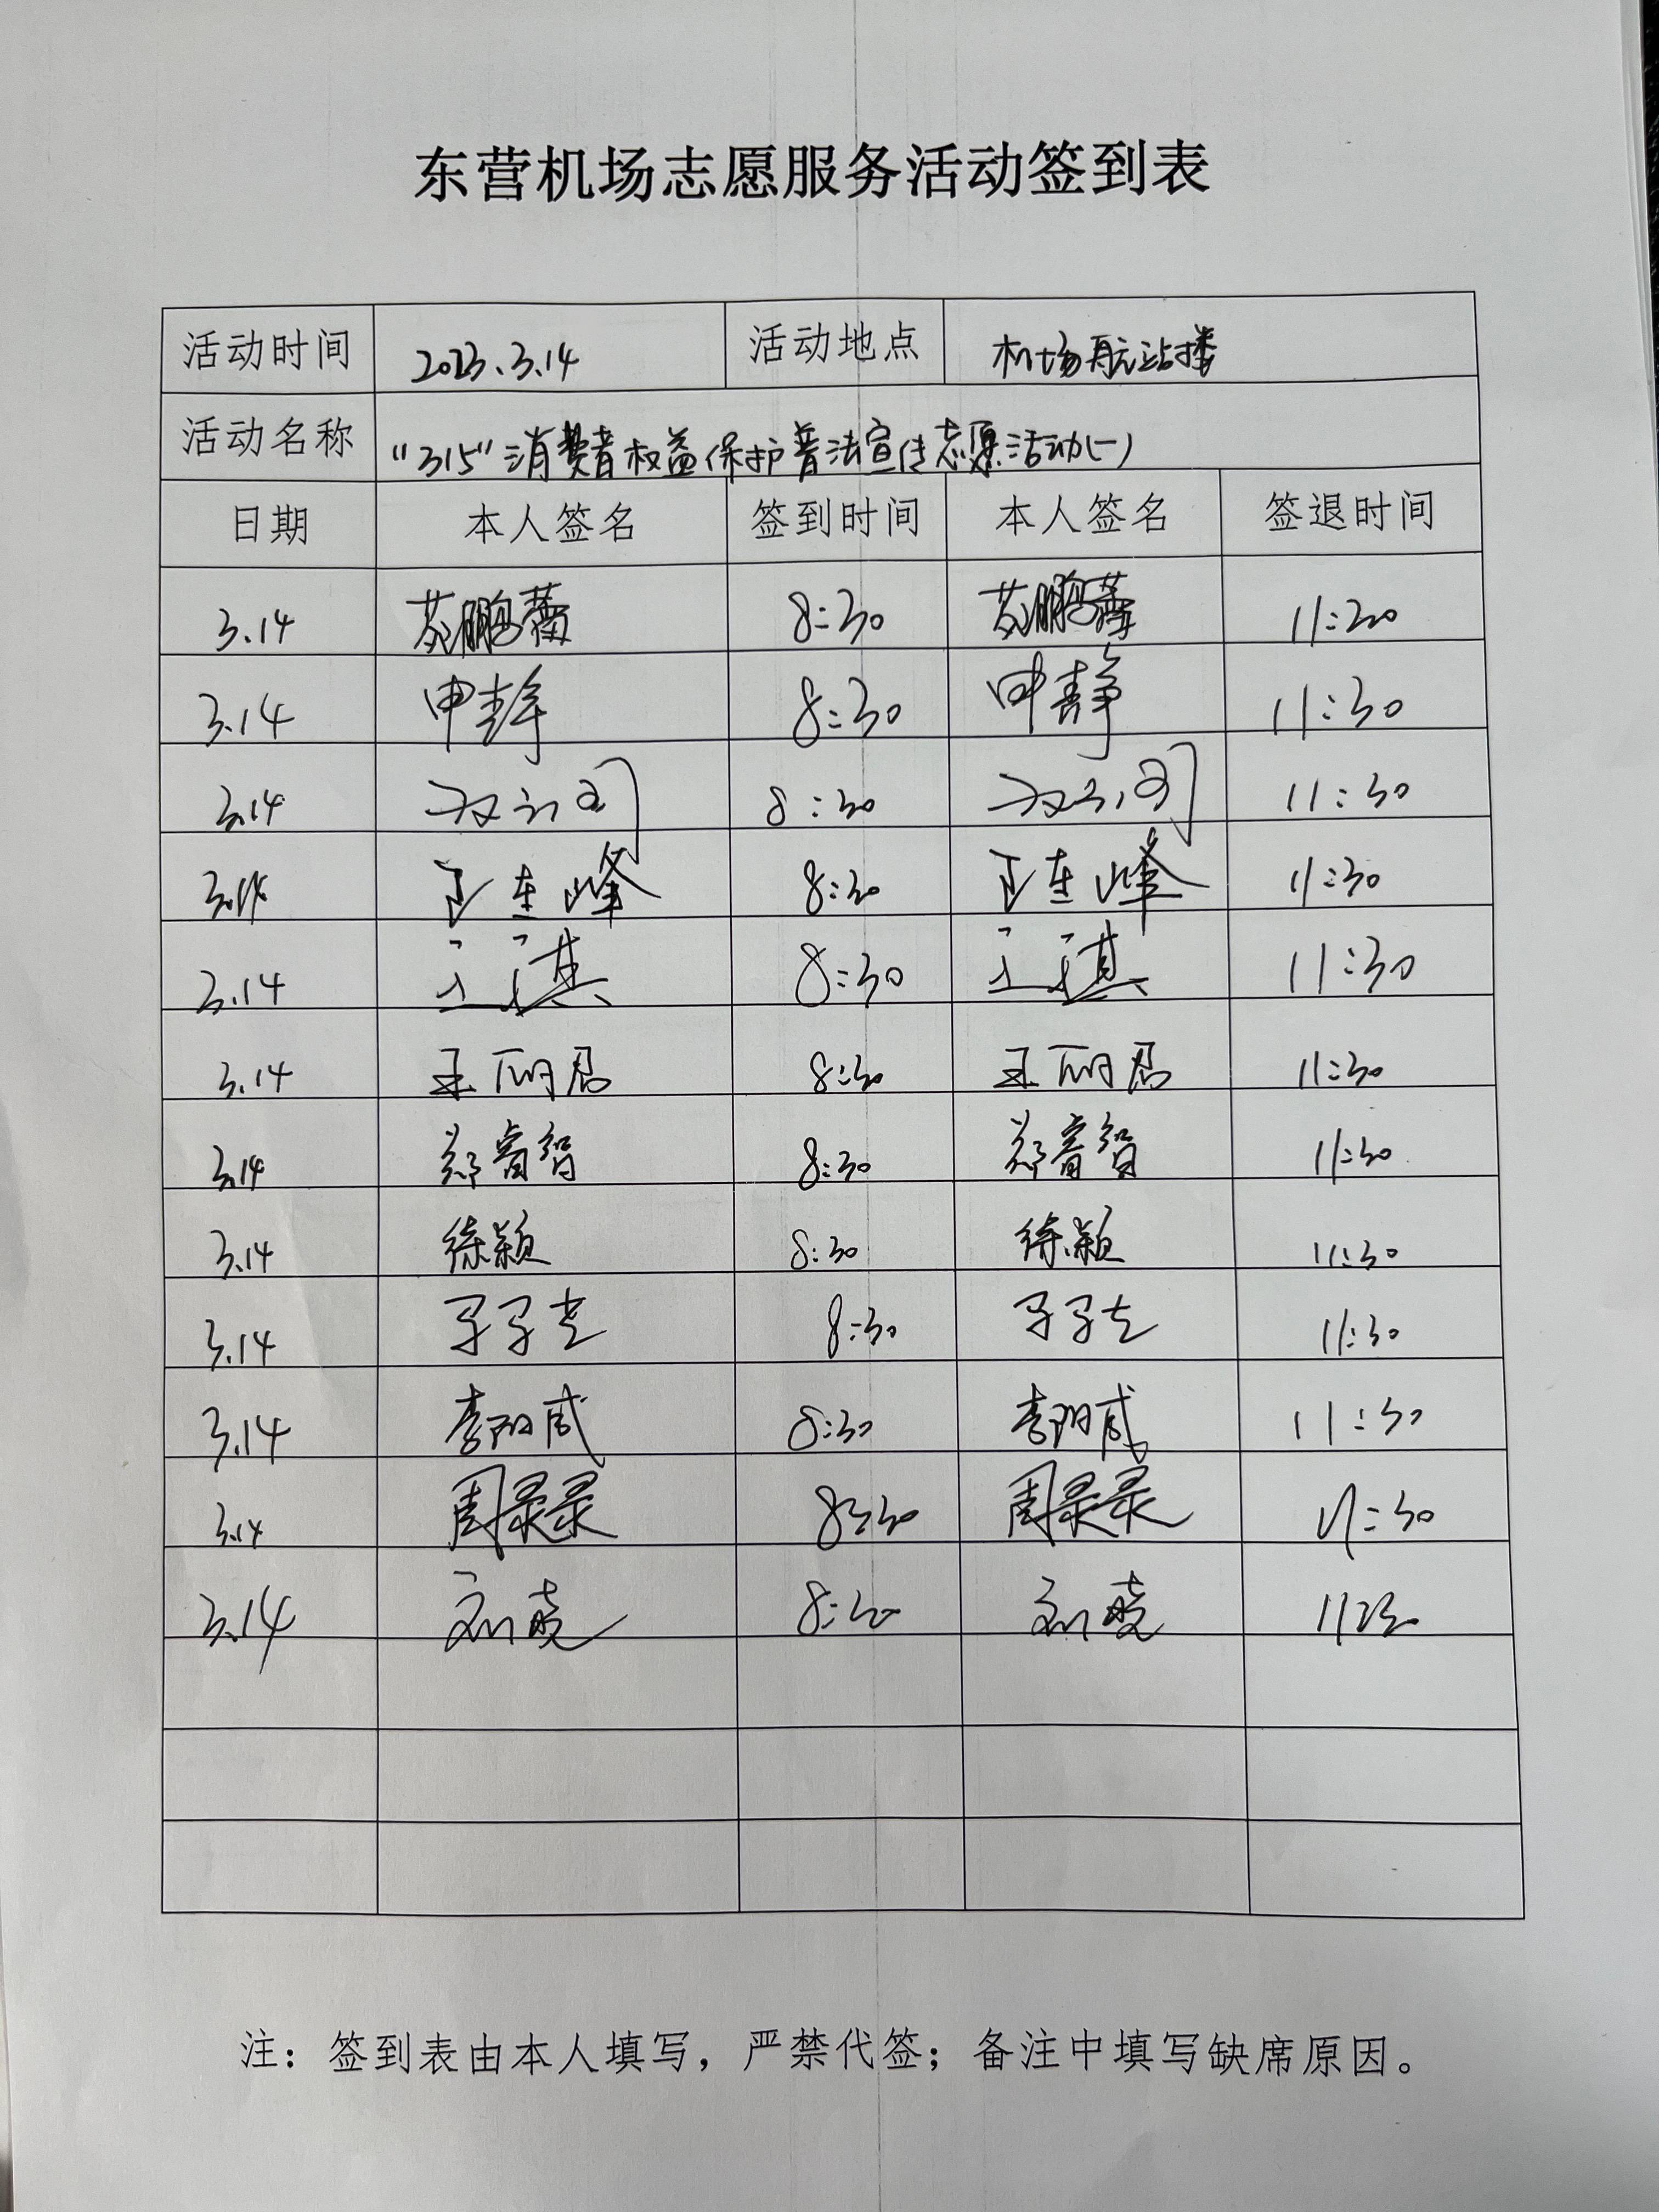 东营机场志愿服务活动签到表
活动时间 2023.3.14 活动地点 机场航站楼
活动名称 "315"消费者权益保护普法宣传志愿活动(一)
日期 本人签名 签到时间 本人签名 签退时间
3.14 8:30 11:30
3.14 申静 8:30 11:30
3.14 8:30 11:30
3.14 王连峰 8:30 11:30
3.14 王祺 8:30 王祺 11:30
3.14 王丽君 8:30 王丽君 11:30
3.14 郑睿智 8:30 郑睿智 11:30
3.14 徐颖 8:30 徐颖 11:30
3.14 8:30 11:30
3.14 8:30 11:30
3.14 周录录 8:30 周录录 11:30
3.14 刘晓 8:30 刘晓 11:30
注：签到表由本人填写，严禁代签；备注中填写缺席原因。